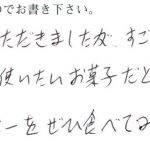 でお書き下さい。
ただきましたが、すご
使いたいお菓子だと
ーをぜひ食べてみ